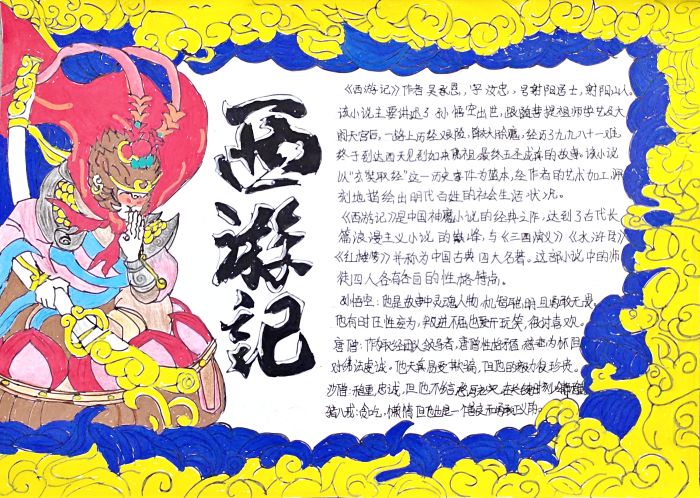 西游记
《西游记》作者吴承恩，字汝忠，号射阳居士，射阳山人。
该小说主要讲述了孙悟空出世，跟随菩提祖师学艺及大
闹天宫后，一路上历经艰险，降妖除魔，经历了九九八十一难
终于到达西天见到如来佛祖最终五圣成真的故事。该小说
以"玄奘取经"这一历史事件为蓝本，经作者的艺术加工深
刻地描绘出明代百姓的社会生活状况。
《西游记》是中国神魔小说的经典之作，达到了古代长
篇浪漫主义小说的巅峰，与《三国演义》《水浒传》
《红楼梦》并称为中国古典四大名著。这部小说中的师
徒四人各有各自的性格特点。
孙悟空：他是故事中灵魂人物，机智聪明且勇敢无畏，
他有时任性妄为，很讨喜欢。
唐僧：作为取经团队领导者，唐僧性格
对佛法虔诚。他
沙僧：稳重忠诚，但他不
猪八戒：贪吃，懒惰，但他也是一个